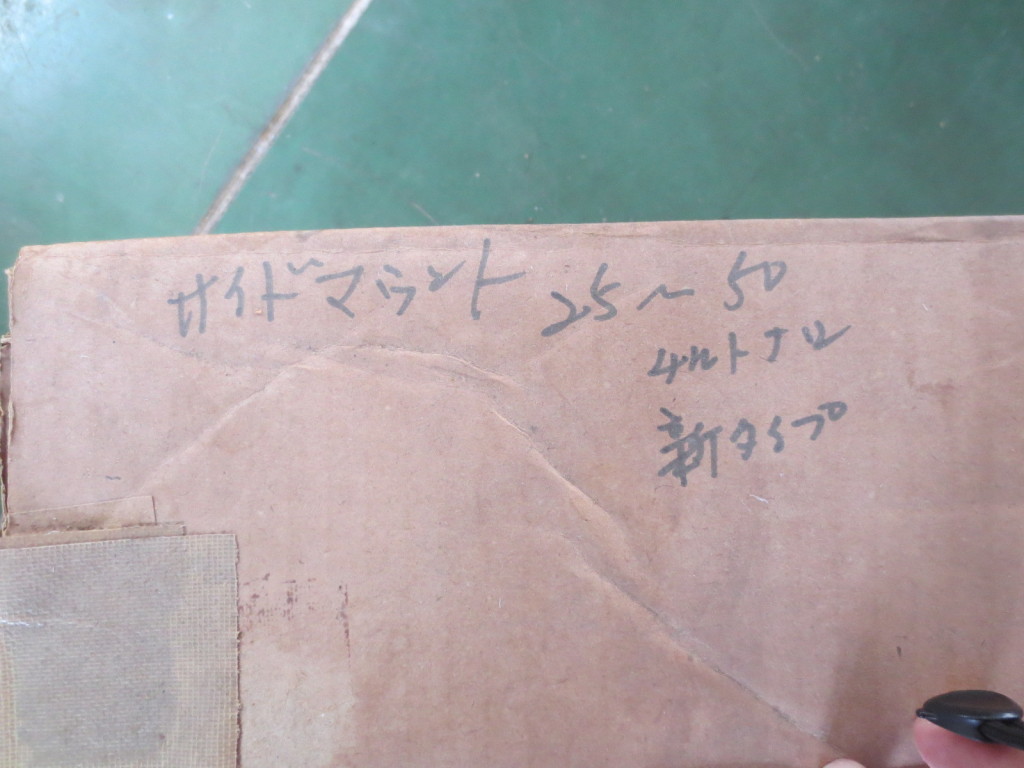 サイドマウント 25～50
チルトナシ
新タイプ